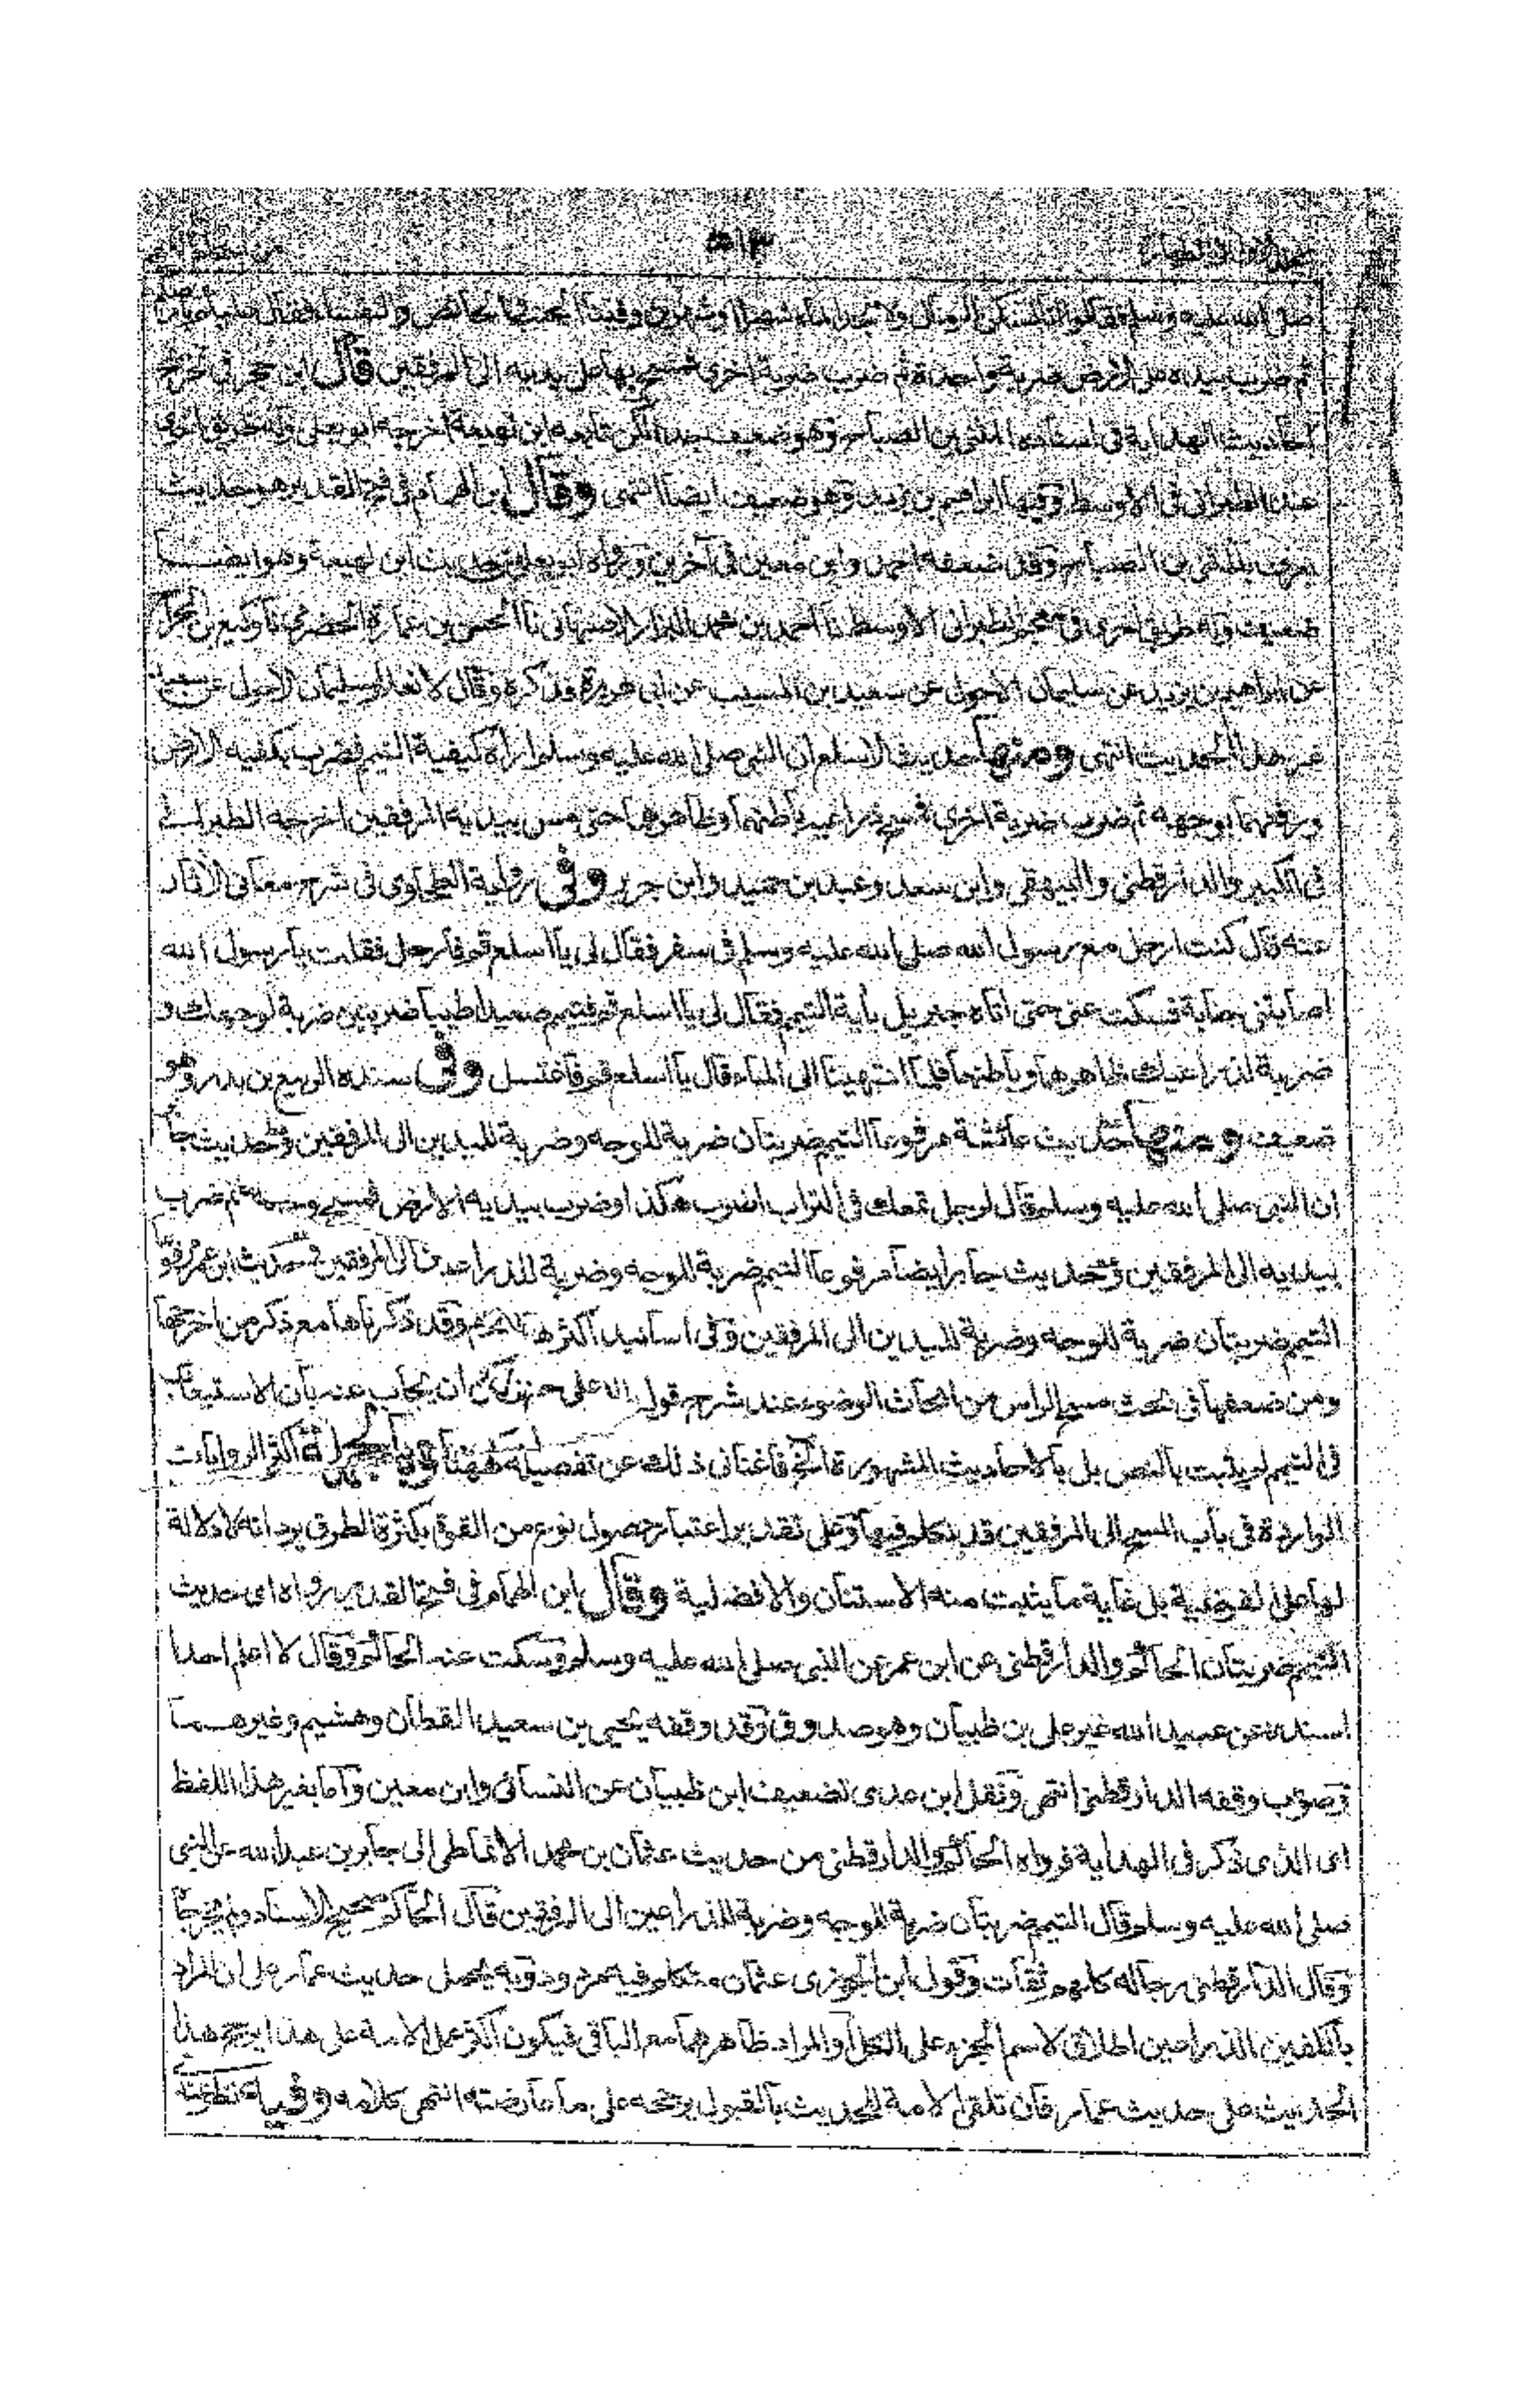 ٥١٣
صلى الله عليه وسلم فقالوا انا نسكن الرمال ولا نجد الماء شهرا او شهرين وفينا الجنب والحائض والنفساء فقال عليكم بالارض
ثم ضرب بيده على الارض ضربة واحدة ثم ضرب ضربة اخرى فمسح بها على يديه الى المرفقين قال ابن حجر في تخريج
احاديث الهداية في اسناده المثنى بن الصباح وهو ضعيف جدا لكن تابعه ابن لهيعة اخرجه ابو يعلى وله طريق اخرى
عند الطبراني في الاوسط وفيها ابراهيم بن يزيد وهو ضعيف ايضا انتهى وقال ابن الهمام في فتح القدير هو حديث
يعرف بالمثنى بن الصباح وقد ضعفه احمد وابن معين في آخرين ورواه ابو يعلى من حديث ابن لهيعة وهو ايضا
ضعيف وله طريق اخرى في معجم الطبراني الاوسط نا احمد بن محمد البزار الاصبهاني نا الحسن بن عمارة الحضرمي نا وكيع بن الجراح
عن ابراهيم بن يزيد عن سليمان الاحول عن سعيد بن المسيب عن ابي هريرة فذكره وقال لا نعلم لسليمان الاحول عن سعيد
غير هذا الحديث انتهى ومنها حديث الاسلع ان النبي صلى الله عليه وسلم اراه كيفية التيمم فضرب بكفيه الارض
ورفعهما لوجهه ثم ضرب ضربة اخرى فمسح ذراعيه باطنهما وظاهرهما حتى مس بيديه المرفقين اخرجه الطبراني
في الكبير والدارقطني والبيهقي وابن سعد وعبد بن حميد وابن جرير وفي رواية الطحاوي في شرح معاني الآثار
عنه قال كنت ارحل مع رسول الله صلى الله عليه وسلم في سفر فقال لي يا اسلع قم فارحل فقلت يا رسول الله
اصابتني جنابة فسكت عني حتى اتاه جبريل بآية التيمم فقال لي يا اسلع قم فتيمم صعيدا طيبا ضربتين ضربة لوجهك و
ضربة لذراعيك ظاهرهما وباطنهما فلما انتهينا الى الماء قال يا اسلع قم فاغتسل وفي سنده الربيع بن بدر وهو
ضعيف ومنها حديث عائشة مرفوعا التيمم ضربتان ضربة للوجه وضربة لليدين الى المرفقين وحديث جابر
ان النبي صلى الله عليه وسلم قال لرجل تمعك في التراب اضرب هكذا وضرب بيديه الارض فمسح وجهه ثم ضرب
بيديه الى المرفقين وحديث جابر ايضا مرفوعا التيمم ضربة للوجه وضربة للذراعين الى المرفقين وحديث ابن عمر مرفوعا
التيمم ضربتان ضربة للوجه وضربة لليدين الى المرفقين وفي اسانيد اكثرها كلام وقد ذكرناها مع ذكر من اخرجها
ومن ضعفها في بحث مسح الراس من ابحاث الوضوء عند شرح قوله لكن ان يجاب عنه بان الاستيعاب
في التيمم لم يثبت بالنص بل بالاحاديث المشهورة الخ فاغناني ذلك عن تفصيله ههنا وبالجملة اكثر الروايات
الواردة في باب المسح الى المرفقين قد تكلم فيها وعلى تقدير اعتبار حصول نوع من القوة بكثرة الطرق يرد انه لا دلالة
لها على الفرضية بل غاية ما يثبت منه الاستنان والافضلية وقال ابن الهمام في فتح القدير رواه اي حديث
التيمم ضربتان الحاكم والدارقطني عن ابن عمر عن النبي صلى الله عليه وسلم وسكت عنه الحاكم وقال لا اعلم احدا
اسنده عن عبيد الله غير علي بن ظبيان وهو صدوق وقد وقفه يحيى بن سعيد القطان وهشيم وغيرهما
وصوب وقفه الدارقطني انتهى ونقل ابن عدى تضعيف ابن ظبيان عن النسائي وابن معين واما بغير هذا اللفظ
اي الذي ذكر في الهداية فرواه الحاكم والدارقطني من حديث عثمان بن محمد الانماطي الى جابر بن عبد الله عن النبي
صلى الله عليه وسلم قال التيمم ضربتان ضربة للوجه وضربة للذراعين الى المرفقين قال الحاكم صحيح الاسناد ولم يخرجاه
وقال الدارقطني رجاله كلهم ثقات وقول ابن الجوزي عثمان متكلم فيه مردود وبه يحمل حديث عمار على ان المراد
بالكفين الذراعين اطلاق لاسم الجزء على الكل او المراد ظاهرهما مع الباقي فيكون اكثر عمل الامة على هذا يرجح هذا
الحديث على حديث عمار فان تلقي الامة للحديث بالقبول يرجحه على ما عارضته انتهى كلامه وفيه نظر